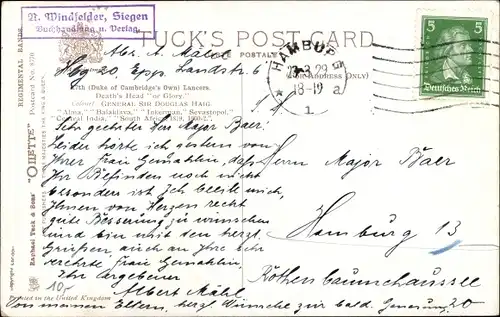 R. Windfelder, Siegen
Buchhandlung u. Verlag.
TUCK'S POST CARD
Abs. A. Mähl
Hbg 20, Epp. Landstr. 6
HAMBURG
18-19 a
1
(FOR ADDRESS ONLY)
5 5
Deutsches Reich
17th (Duke of Cambridge's Own) Lancers.
"Death's Head" "or Glory."
Colonel GENERAL SIR DOUGLAS HAIG
"Alma," "Balaklava," "Inkerman," "Sevastopol,"
"Central India," "South Africa, 1879, 1900-2."
REGIMENTAL BANDS
Postcard No. 8770
"OILETTE"
Raphael Tuck & Sons'
Copyright London
Printed in the United Kingdom
Sehr geehrter Herr Major Baer,
leider hörte ich gestern von
Ihrer Frau Gemahlin, daß
Ihr Befinden noch nicht
besonders ist. Ich beeile mich,
Ihnen von Herzen recht
gute Besserung zu wünschen
und bin mit den herzl.
Grüßen, auch an Ihre sehr
verehrte Frau Gemahlin,
Ihr ergebener
Albert Mähl
Von meinen Eltern, herzl. Wünsche zur bald. Genesung
Herrn Major Baer
Hamburg 13
Rothenbaumchaussee
20
10,-